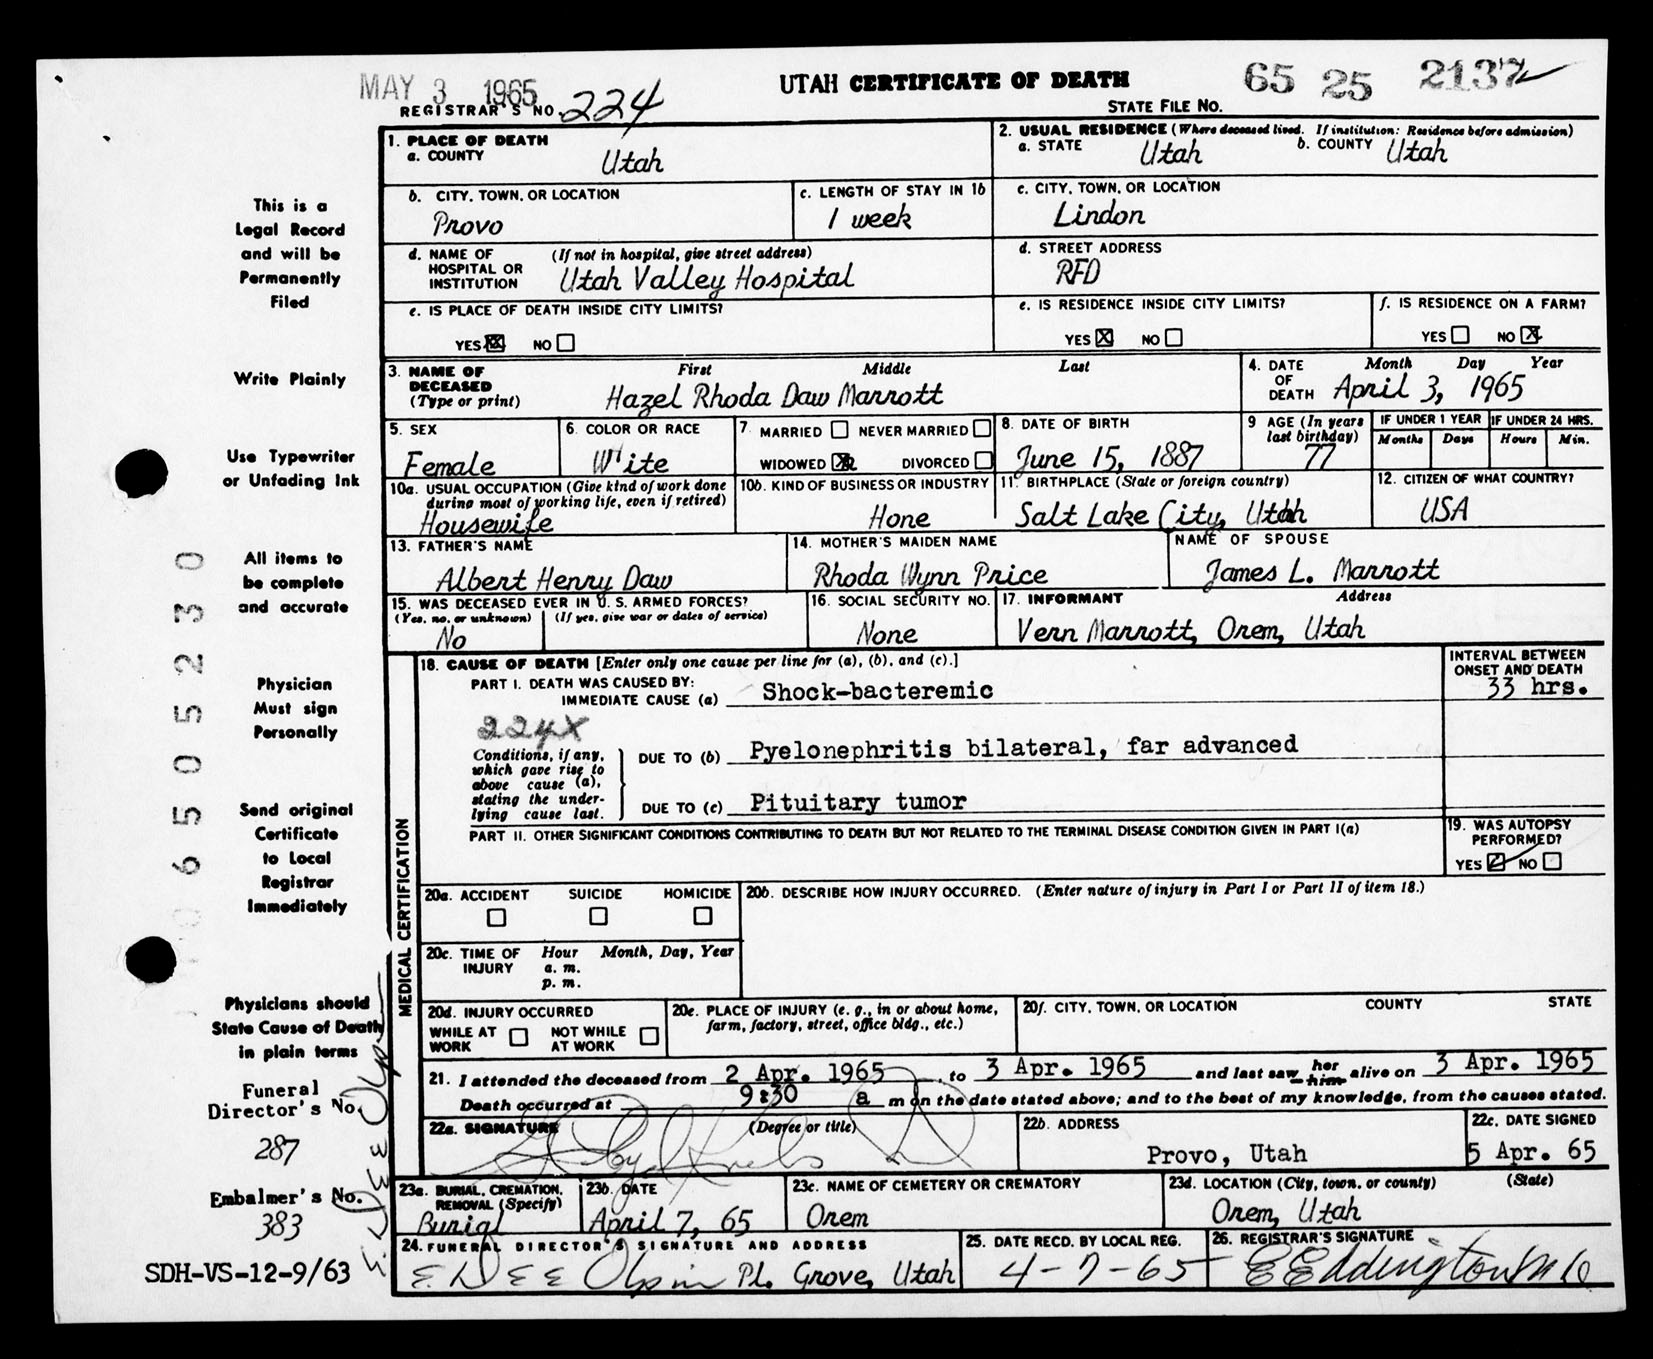 MAY 3 1965
REGISTRAR'S NO. 224
UTAH CERTIFICATE OF DEATH
STATE FILE NO. 65 25 2137
This is a
Legal Record
and will be
Permanently
Filed
Write Plainly
Use Typewriter
or Unfading Ink
All items to
be complete
and accurate
Physician
Must sign
Personally
Send original
Certificate
to Local
Registrar
Immediately
Physicians should
State Cause of Death
in plain terms
Funeral
Director's No.
287
Embalmer's No.
383
SDH-VS-12-9/63
06505230
1. PLACE OF DEATH
a. COUNTY
Utah
2. USUAL RESIDENCE (Where deceased lived. If institution: Residence before admission)
a. STATE Utah b. COUNTY Utah
b. CITY, TOWN, OR LOCATION
Provo
c. LENGTH OF STAY IN 1b
1 week
c. CITY, TOWN, OR LOCATION
Lindon
d. NAME OF HOSPITAL OR INSTITUTION (If not in hospital, give street address)
Utah Valley Hospital
d. STREET ADDRESS
RFD
e. IS PLACE OF DEATH INSIDE CITY LIMITS?
YES X NO
e. IS RESIDENCE INSIDE CITY LIMITS?
YES X NO
f. IS RESIDENCE ON A FARM?
YES NO X
3. NAME OF DECEASED (Type or print) First Middle Last
Hazel Rhoda Daw Marrott
4. DATE OF DEATH Month Day Year
April 3, 1965
5. SEX
Female
6. COLOR OR RACE
White
7. MARRIED NEVER MARRIED
WIDOWED X DIVORCED
8. DATE OF BIRTH
June 15, 1887
9 AGE (In years last birthday)
77
IF UNDER 1 YEAR
Months Days
IF UNDER 24 HRS.
Hours Min.
10a. USUAL OCCUPATION (Give kind of work done during most of working life, even if retired)
Housewife
10b. KIND OF BUSINESS OR INDUSTRY
Hone
11. BIRTHPLACE (State or foreign country)
Salt Lake City, Utah
12. CITIZEN OF WHAT COUNTRY?
USA
13. FATHER'S NAME
Albert Henry Daw
14. MOTHER'S MAIDEN NAME
Rhoda Wynn Price
NAME OF SPOUSE
James L. Marrott
15. WAS DECEASED EVER IN U. S. ARMED FORCES?
(Yes, no, or unknown) (If yes, give war or dates of service)
No
16. SOCIAL SECURITY NO.
None
17. INFORMANT Address
Vern Marrott, Orem, Utah
MEDICAL CERTIFICATION
18. CAUSE OF DEATH [Enter only one cause per line for (a), (b), and (c).]
INTERVAL BETWEEN ONSET AND DEATH
PART I. DEATH WAS CAUSED BY:
IMMEDIATE CAUSE (a) Shock-bacteremic 33 hrs.
224X
Conditions, if any, which gave rise to above cause (a), stating the underlying cause last.
DUE TO (b) Pyelonephritis bilateral, far advanced
DUE TO (c) Pituitary tumor
PART II. OTHER SIGNIFICANT CONDITIONS CONTRIBUTING TO DEATH BUT NOT RELATED TO THE TERMINAL DISEASE CONDITION GIVEN IN PART I(a)
19. WAS AUTOPSY PERFORMED?
YES NO
20a. ACCIDENT SUICIDE HOMICIDE
20b. DESCRIBE HOW INJURY OCCURRED. (Enter nature of injury in Part I or Part II of item 18.)
20c. TIME OF INJURY Hour Month, Day, Year
a. m.
p. m.
20d. INJURY OCCURRED
WHILE AT WORK NOT WHILE AT WORK
20e. PLACE OF INJURY (e. g., in or about home, farm, factory, street, office bldg., etc.)
20f. CITY, TOWN, OR LOCATION COUNTY STATE
21. I attended the deceased from 2 Apr. 1965 to 3 Apr. 1965 and last saw her him alive on 3 Apr. 1965
Death occurred at 9:30 a m on the date stated above; and to the best of my knowledge, from the causes stated.
22a. SIGNATURE (Degree or title)
22b. ADDRESS
Provo, Utah
22c. DATE SIGNED
5 Apr. 65
23a. BURIAL, CREMATION, REMOVAL (Specify)
Burial
23b. DATE
April 7, 65
23c. NAME OF CEMETERY OR CREMATORY
Orem
23d. LOCATION (City, town, or county) (State)
Orem, Utah
24. FUNERAL DIRECTOR'S SIGNATURE AND ADDRESS
E. DEE Olpin Pl. Grove, Utah
25. DATE RECD. BY LOCAL REG.
4-7-65
26. REGISTRAR'S SIGNATURE
EEddington